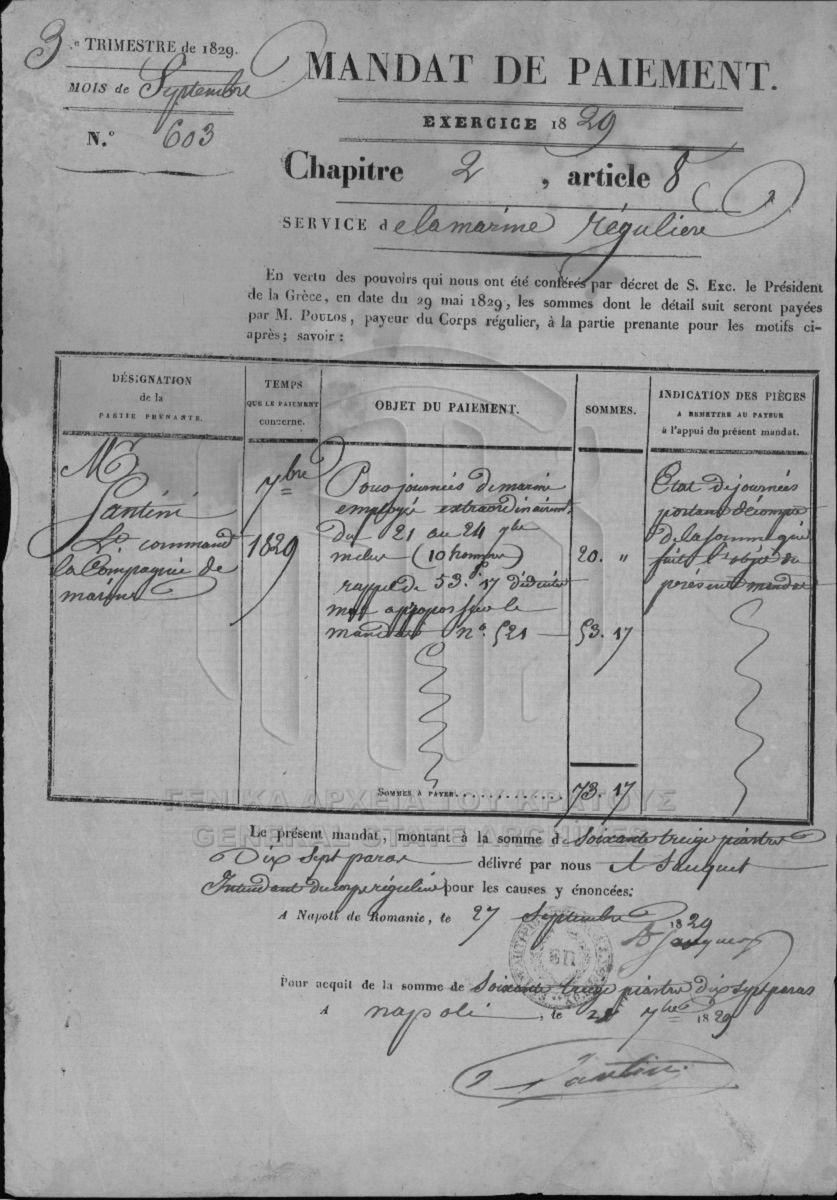 3.e TRIMESTRE de 1829.
MOIS de Septembre
N.° 603
MANDAT DE PAIEMENT.
EXERCICE 1829
Chapitre 2, article 8
SERVICE de la marine régulière
En vertu des pouvoirs qui nous ont été conférés par décret de S. Exc. le Président
de la Grèce, en date du 29 mai 1829, les sommes dont le détail suit seront payées
par M. POULOS, payeur du Corps régulier, à la partie prenante pour les motifs ci-
après; savoir:
DÉSIGNATION
de la
PARTIE PRENANTE.
TEMPS
QUE LE PAIEMENT
concerne.
OBJET DU PAIEMENT.
SOMMES.
INDICATION DES PIÈCES
A REMETTRE AU PAYEUR
à l'appui du présent mandat.
Mr
Santini
command
la Compagnie de
marine
7bre
1829
Pour journées de marine
employé extraordinairemt
du 21 au 24 7bre
(10 hommes) 20. "
rappel de 53. 17
mandat n.° 521 — 53. 17
Etat de journées
portant décompte
de la somme qui
fait l'objet du
présent mandat
SOMMES A PAYER. 73. 17
ΓΕΝΙΚΑ ΑΡΧΕΙΑ ΤΟΥ ΚΡΑΤΟΥΣ
GENERAL STATE ARCHIVES
Le présent mandat, montant à la somme de soixante treize piastres
Dix sept paras délivré par nous
Intendant du corps régulier pour les causes y énoncées.
A Napoli de Romanie, le 27 Septembre 1829
Pour acquit de la somme de soixante treize piastre dix sept paras
A napoli, le 7bre 1829
Santini